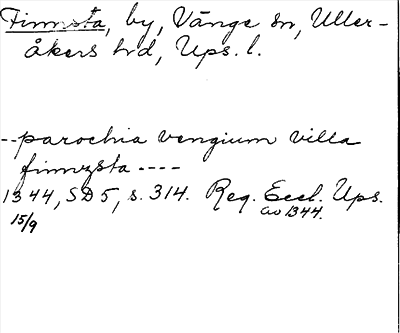 Finnsta, by, Vänge sn, Uller-
åkers hd, Ups. l.
--parochia vengium villa
finnzsta ----
1344, SD 5, s. 314. Reg. Eccl. Ups.
av 1344.
15/9